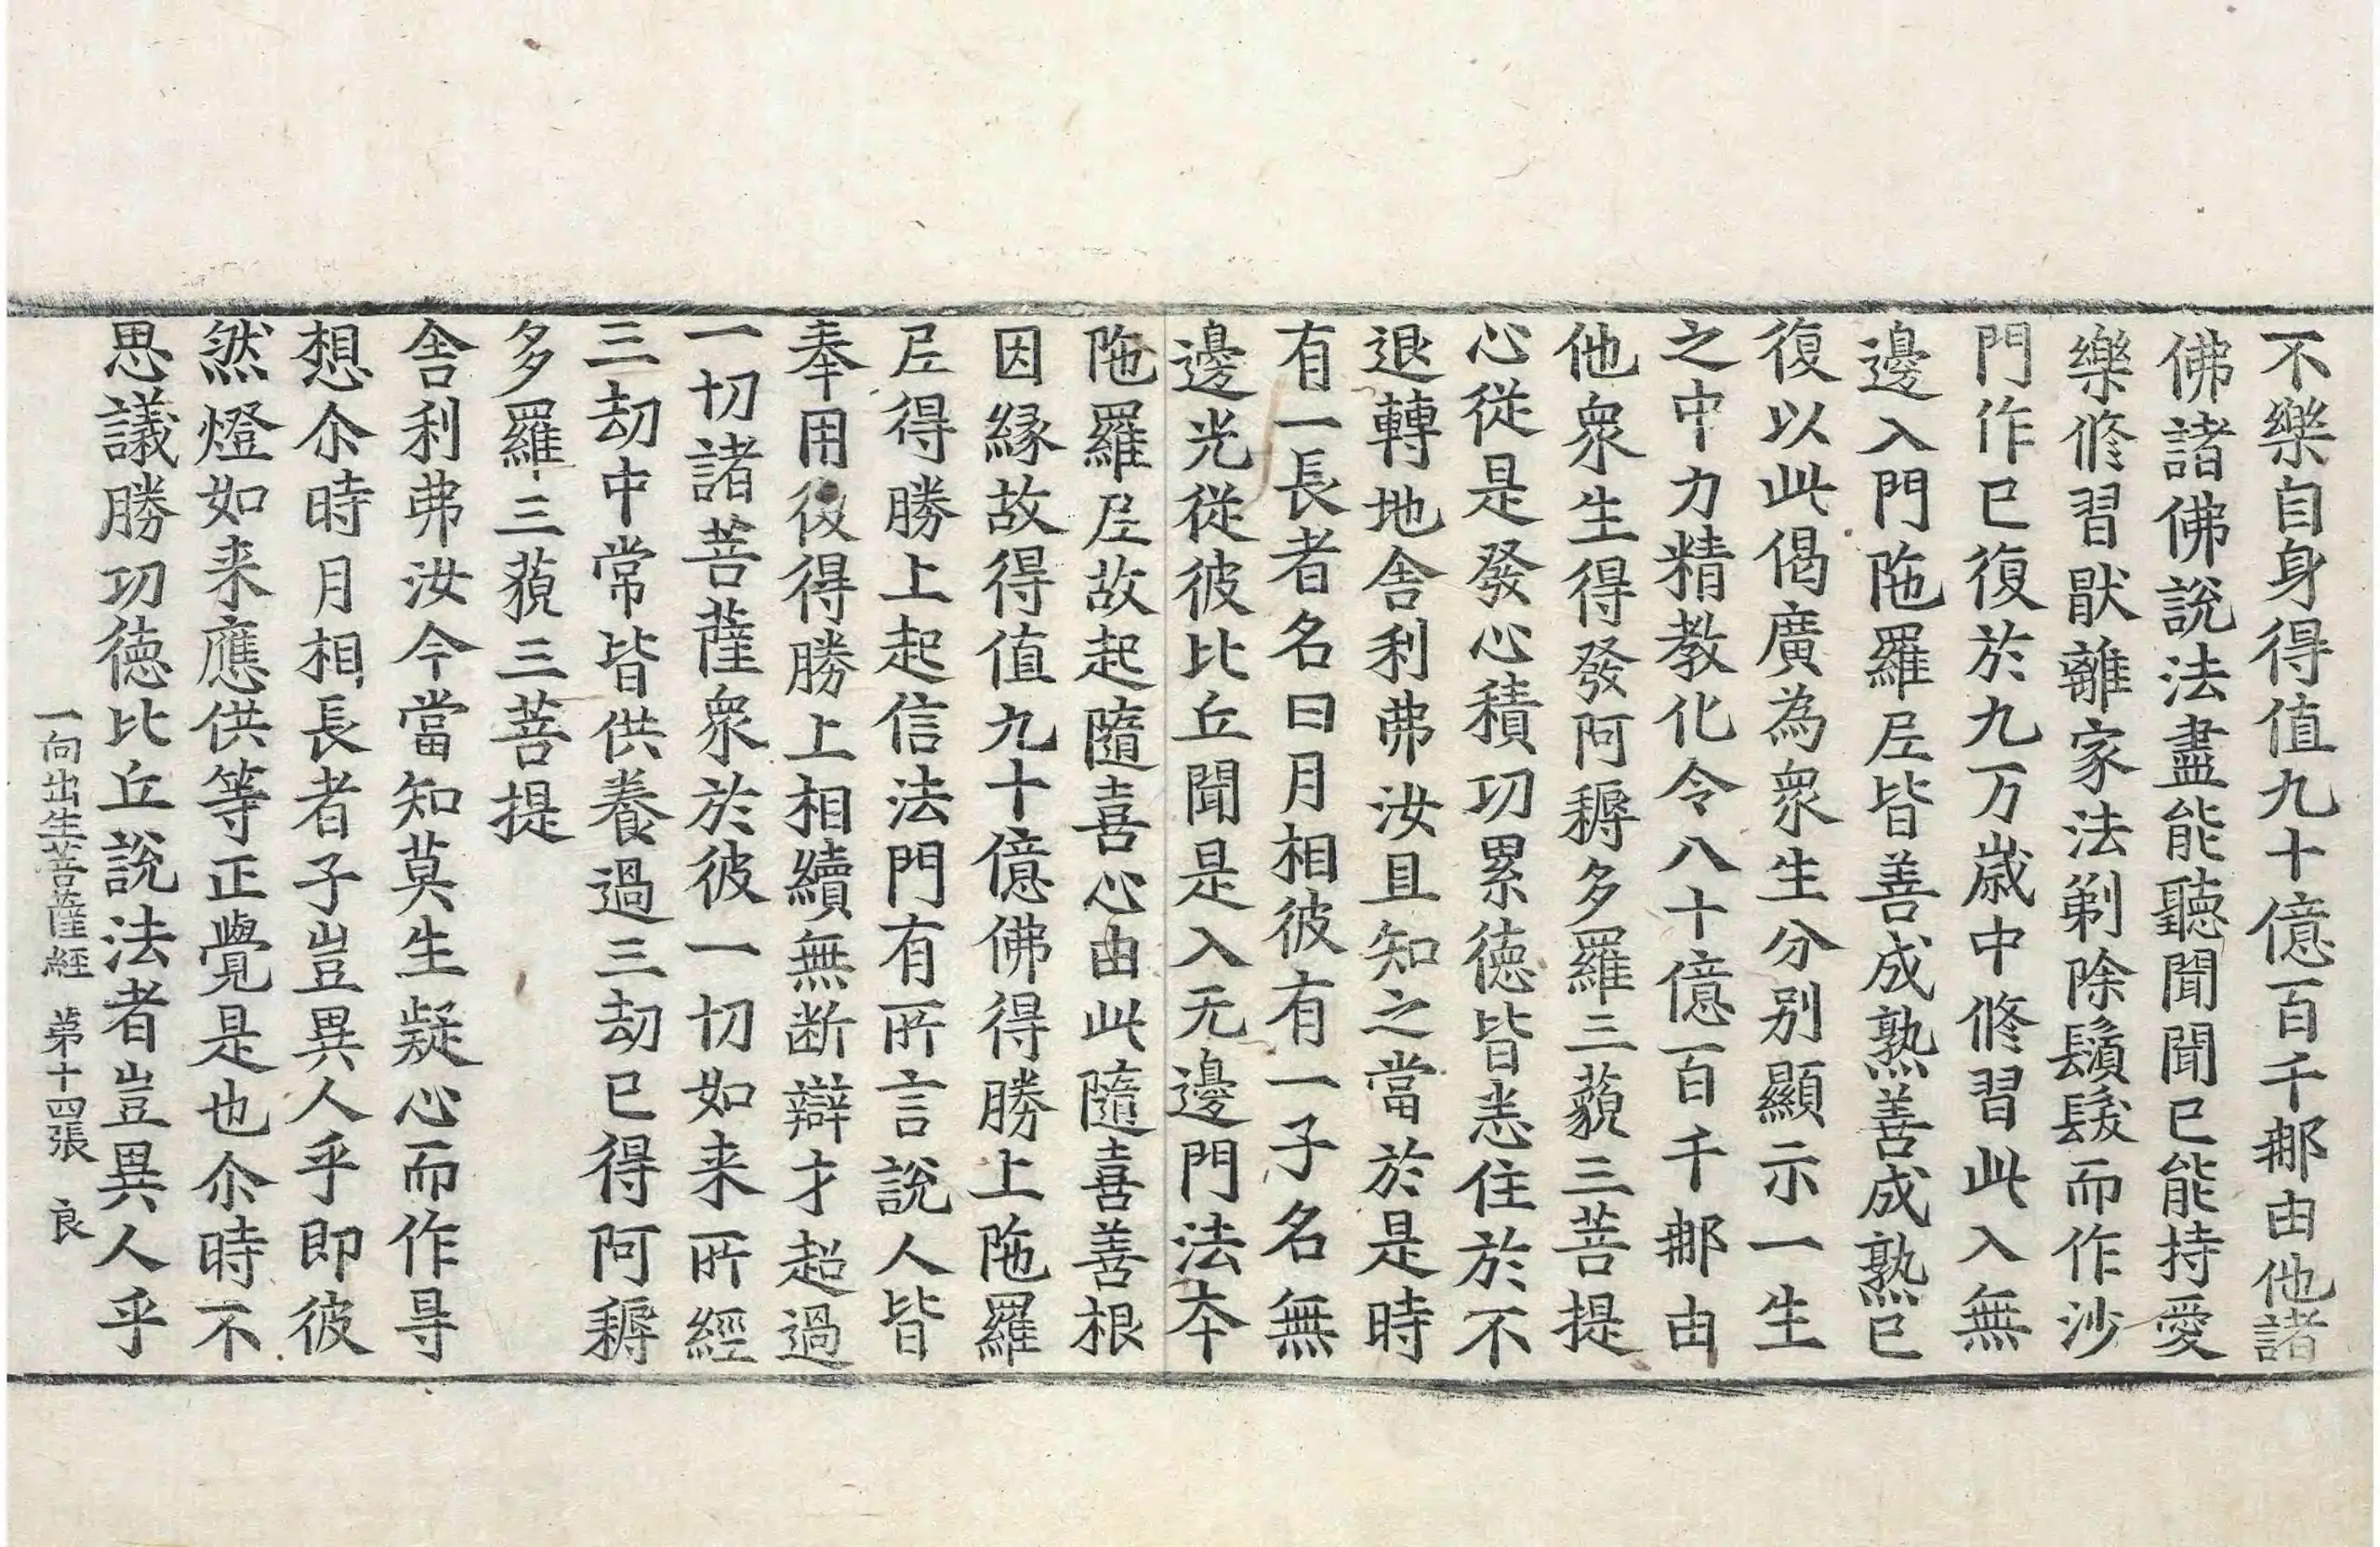 不樂自身得值九十億百千𨙻由他諸
佛諸佛說法盡能聽聞聞已能持愛
樂修習猒離家法剃除鬚髮而作沙
門作已復於九万歳中修習此入無
邊入門陁羅𡰱皆善成熟善成熟已
復以此偈廣為衆生分别顯示一生
之中力精教化令八十億百千𨙻由
他衆生得發阿耨多羅三藐三菩提
心從是發心積功累徳皆悉住於不
退轉地舍利弗汝且知之當於是時
有一長者名曰月相彼有一子名無
邊光從彼比丘聞是入无邊門法夲
陁羅𡰱故起隨喜心由此隨喜善根
因縁故得值九十億佛得勝上陁羅
𡰱得勝上起信法門有所言說人皆
奉用復得勝上相續無断辯才超過
一切諸菩薩衆於彼一切如来所經
三劫中常皆供養過三劫已得阿耨
多羅三藐三菩提
舍利弗汝今當知莫生疑心而作㝵
想尒時月相長者子豈異人乎即彼
然燈如来應供等正覺是也尒時不
思議勝功徳比丘說法者豈異人乎
一向出生菩薩經 苐十四張 良